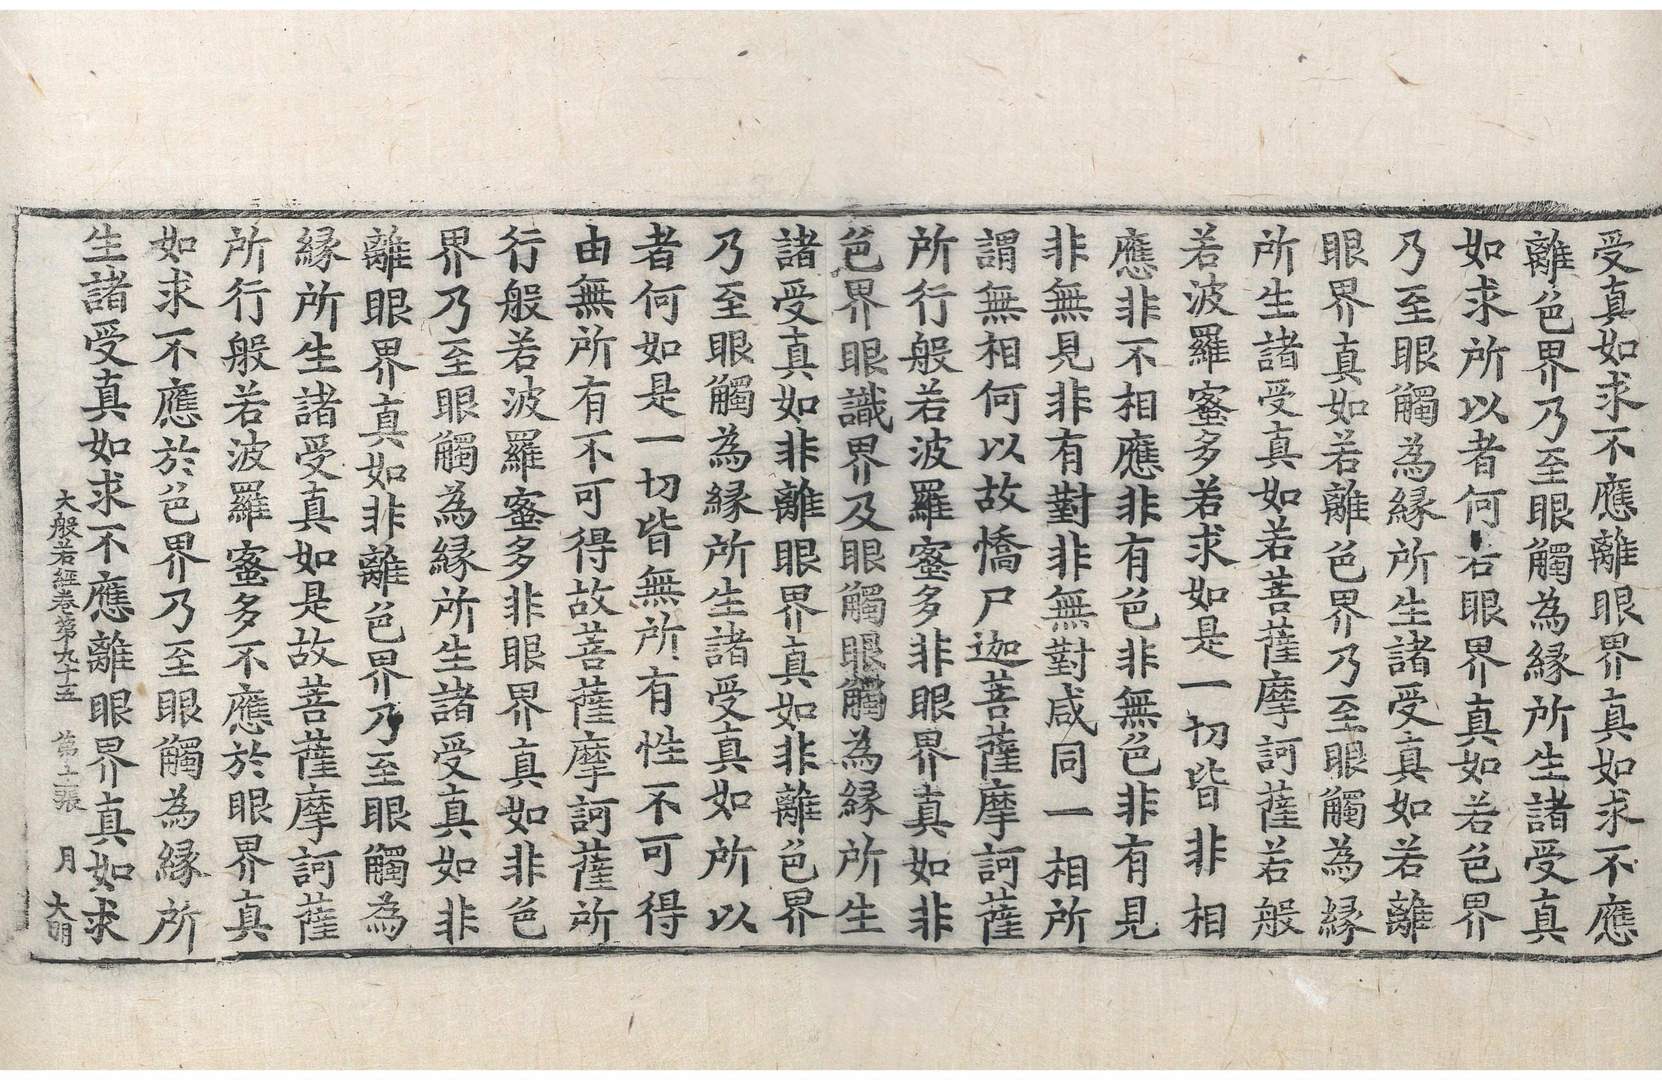 受真如求不應離眼界真如求不應
離色界乃至眼觸為緣所生諸受真
如求所以者何若眼界真如若色界
乃至眼觸為緣所生諸受真如若離
眼界真如若離色界乃至眼觸為緣
所生諸受真如若菩薩摩訶薩若般
若波羅蜜多若求如是一切皆非相
應非不相應非有色非無色非有見
非無見非有對非無對咸同一相所
謂無相何以故憍尸迦菩薩摩訶薩
所行般若波羅蜜多非眼界真如非
色界眼識界及眼觸眼觸為緣所生
諸受真如非離眼界真如非離色界
乃至眼觸為緣所生諸受真如所以
者何如是一切皆無所有性不可得
由無所有不可得故菩薩摩訶薩所
行般若波羅蜜多非眼界真如非色
界乃至眼觸為緣所生諸受真如非
離眼界真如非離色界乃至眼觸為
緣所生諸受真如是故菩薩摩訶薩
所行般若波羅蜜多不應於眼界真
如求不應於色界乃至眼觸為緣所
生諸受真如求不應離眼界真如求
大般若經卷第九十五 第十二張 月 大明